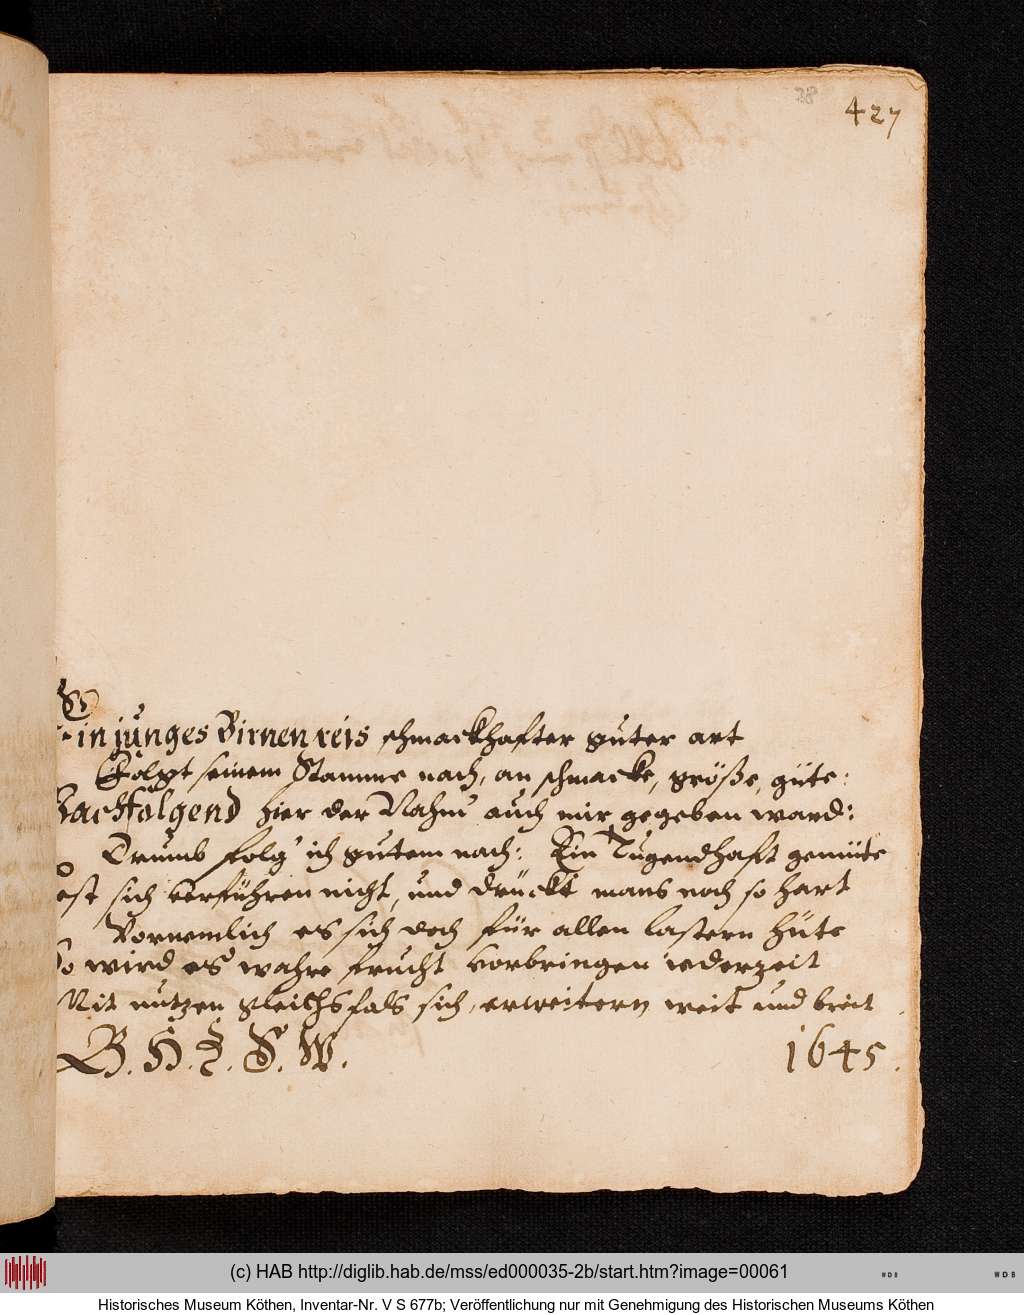 28
427
Ein junges Birnenreis schmackhafter guter art
Folgt seinem Stamme nach, an schmacke, größe, güte:
Nachfolgend hier der Nahm' auch mir gegeben ward:
Drumb folg' ich gutem nach: Ein Tugendhaft gemüte
Lest sich verführen nicht, und drückt mans noch so hart
Vornemlich es sich doch für allen lastern hüte
So wird es wahre frucht vorbringen iederzeit
Mit nutzen gleichsfals sich, erweitern weit und breit.
B. H. Z. S. W. 1645.
(c) HAB http://diglib.hab.de/mss/ed000035-2b/start.htm?image=00061
WDB WDB
Historisches Museum Köthen, Inventar-Nr. V S 677b; Veröffentlichung nur mit Genehmigung des Historischen Museums Köthen